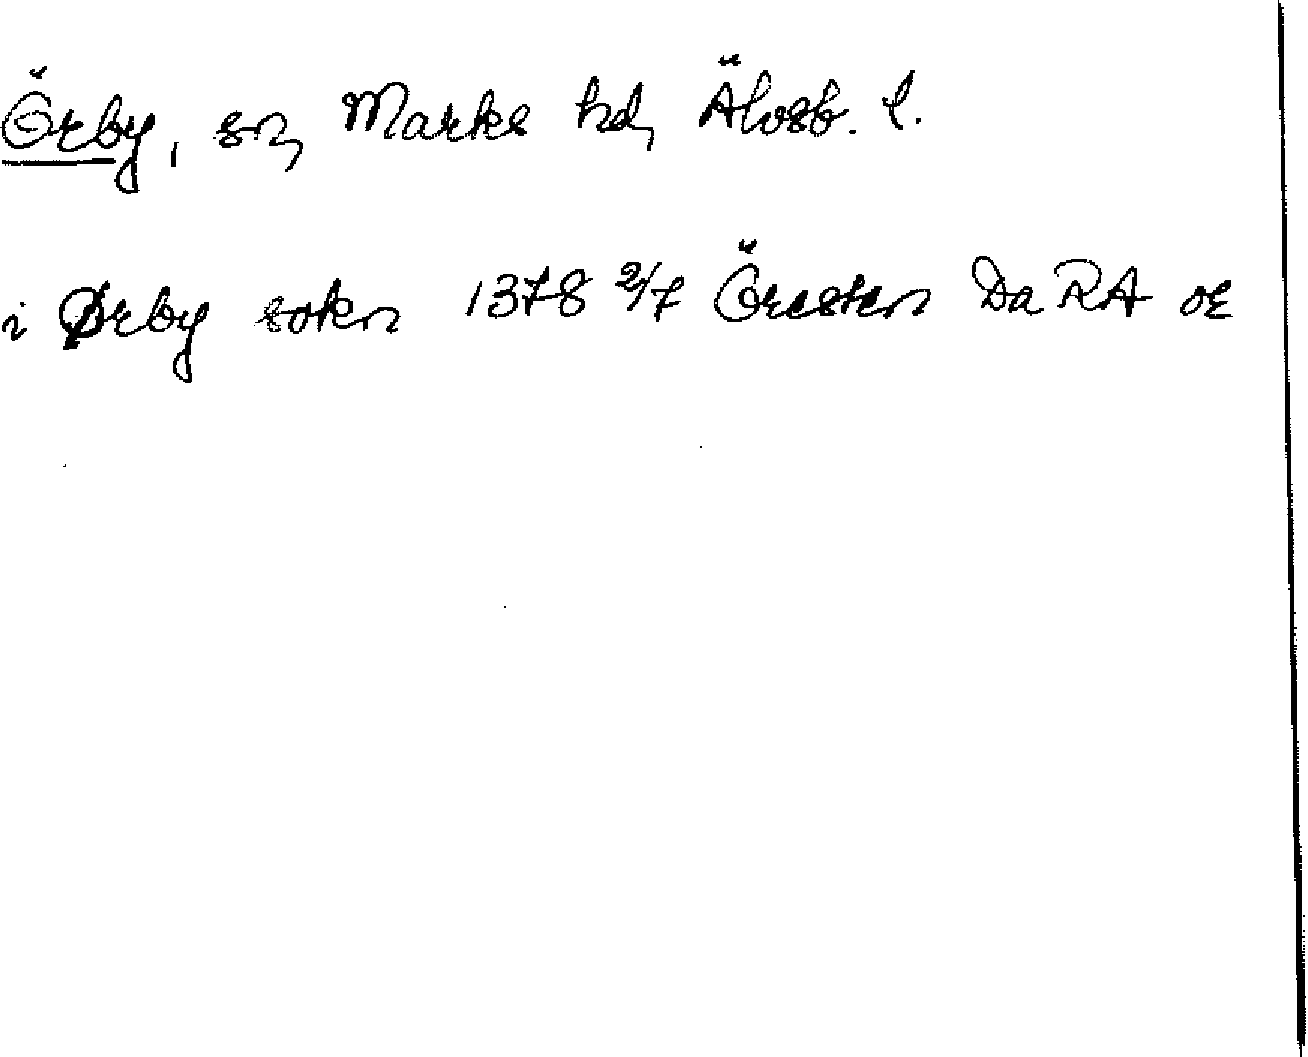 Örby, sn, Marks hd, Älvsb. l.
i Ørby sokn 1378 2/7 Öresten Da RA or